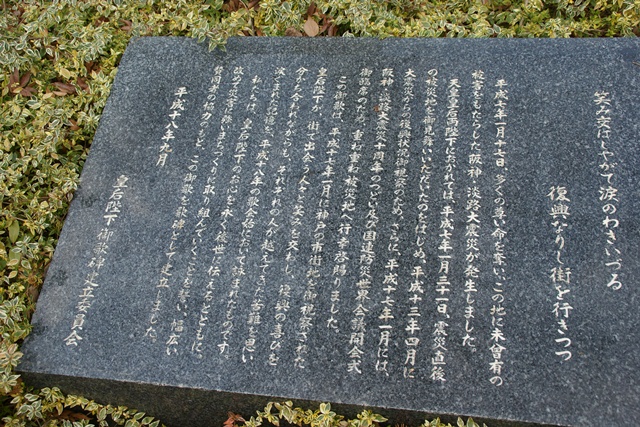 笑み交はしやがて涙のわきいづる
復興なりし街を行きつつ
平成七年一月十七日、多くの尊い命を奪い、この地に未曾有の
被害をもたらした阪神・淡路大震災が発生しました。
天皇皇后両陛下におかれては、平成七年一月三十一日、震災直後
の被災地を御見舞いいただいたのをはじめ、平成十三年四月に
大震災からの復興状況御視察のため、さらに、平成十七年一月には、
阪神・淡路大震災十周年のつどい及び国連防災世界会議開会式
御臨席のため、重ね重ね被災地へ行幸啓賜りました。
この御歌は、平成十七年一月に神戸の市街地を御視察された
皇后陛下が、街で出会う人々と笑みを交わし、復興の喜びを
分かち合われながらも、それぞれの人が越えてきた苦難を思い、
涙ぐまれた御心境を、平成十八年の歌会始において詠まれたものです。
私たちは、皇后陛下のお心を永く後世に伝えるとともに、
改めて災害に強いまちづくりに取り組んでいくことを誓い、幅広い
賛同者の協力のもと、この御歌を歌碑として建立しました。
平成十八年九月
皇后陛下御歌碑建立委員会